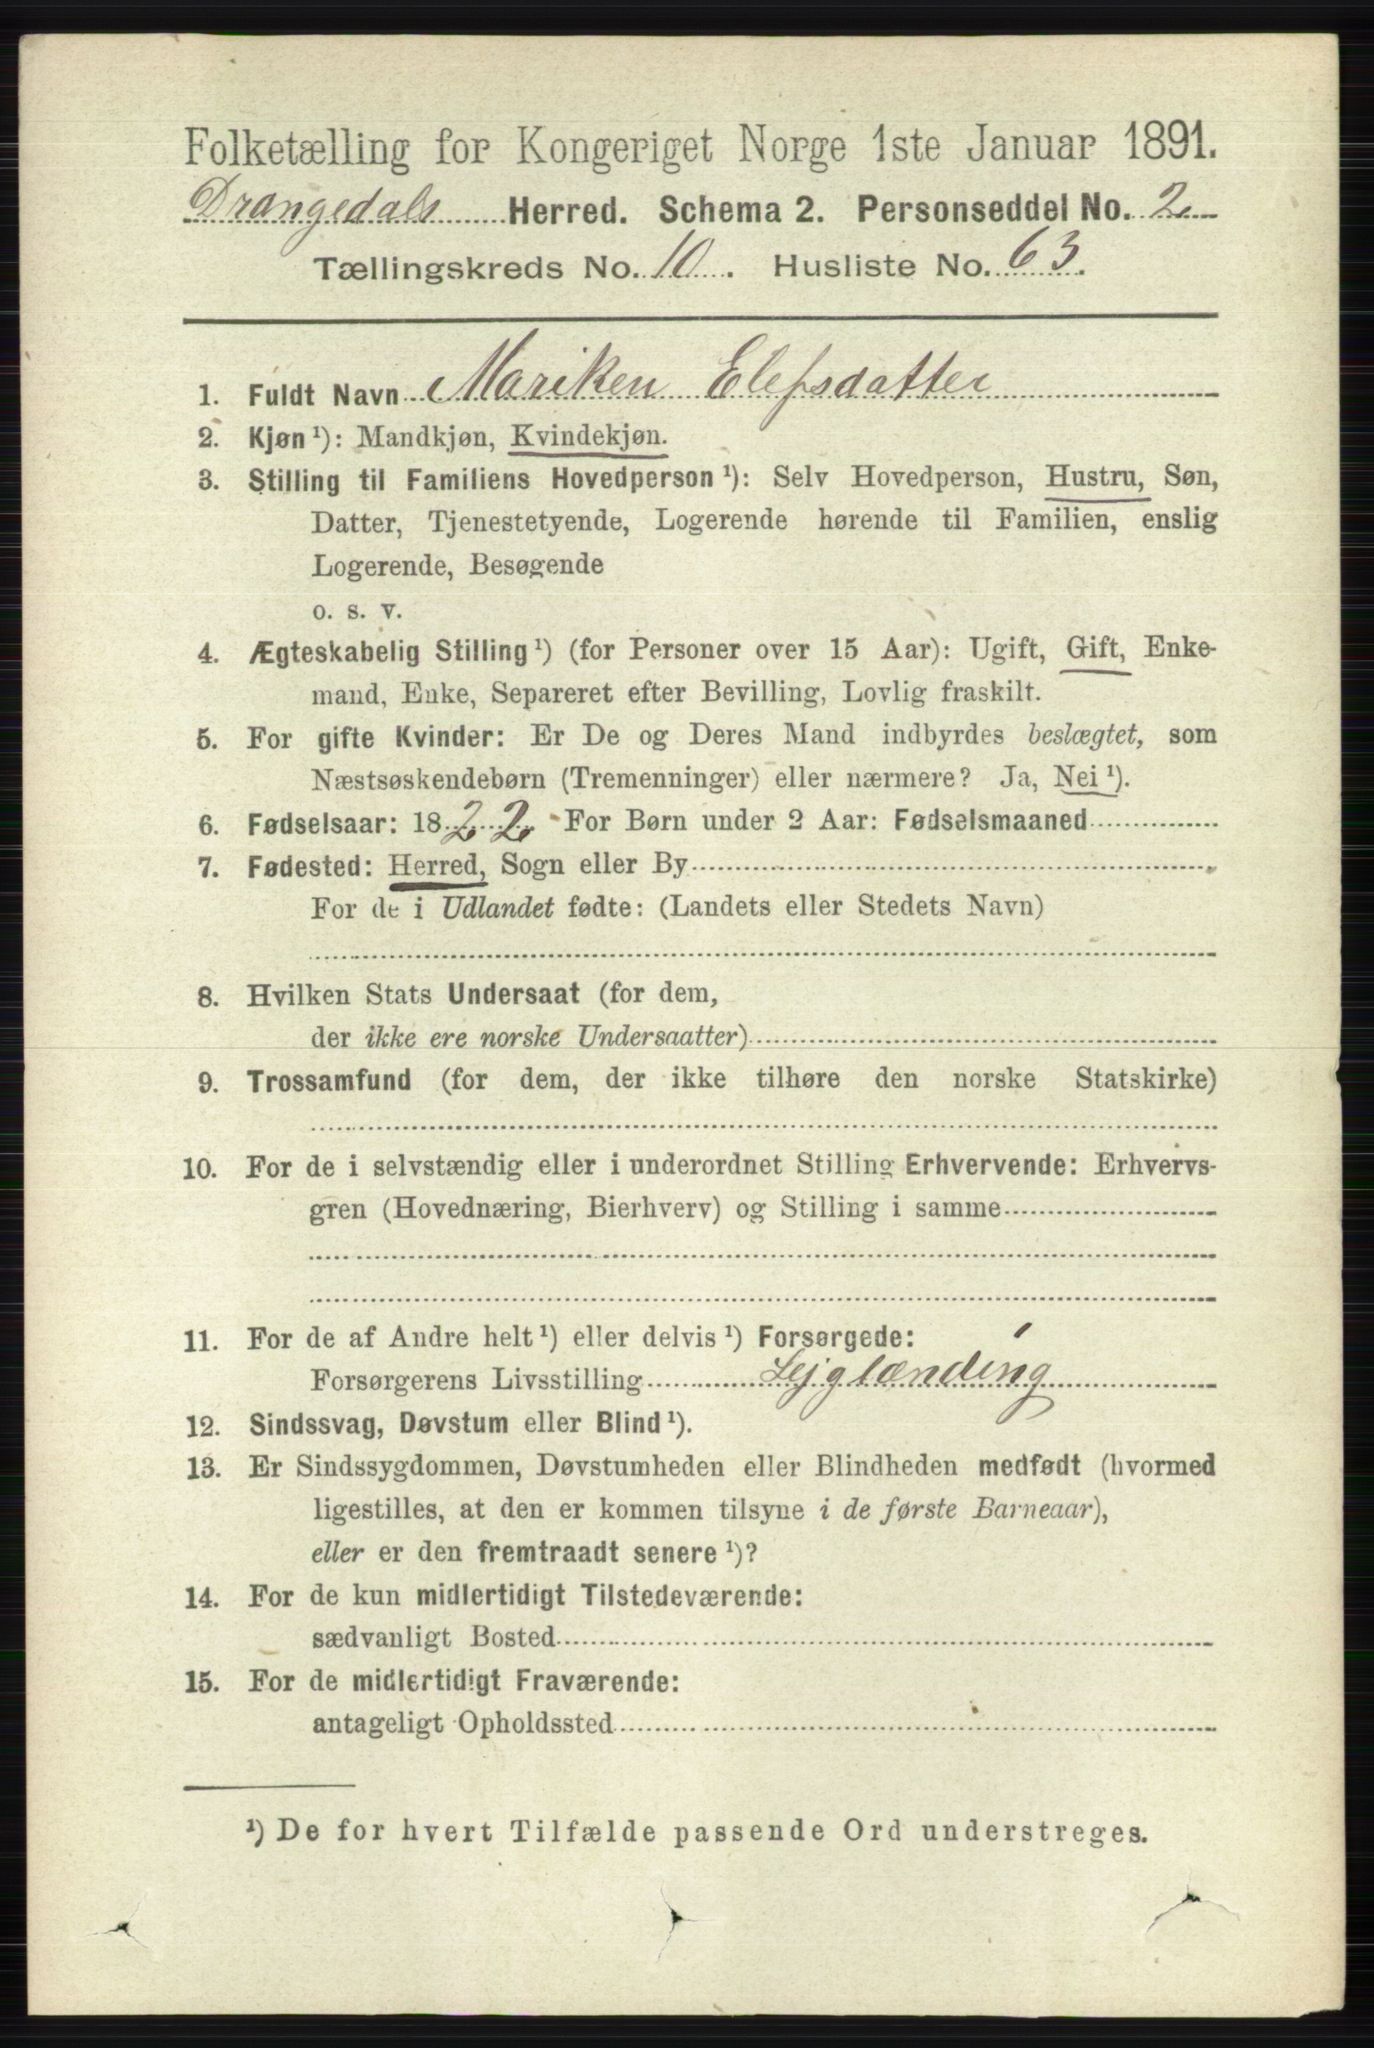 Folketælling for Kongeriget Norge 1ste Januar 1891.
Drangedals Herred. Schema 2. Personseddel No. 2
Tællingskreds No. 10. Husliste No. 63.
1. Fuldt Navn Mariken Elefsdatter
2. Kjøn ¹): Mandkjøn, Kvindekjøn.
3. Stilling til Familiens Hovedperson ¹): Selv Hovedperson, Hustru, Søn,
Datter, Tjenestetyende, Logerende hørende til Familien, enslig
Logerende, Besøgende
o. s. v.
4. Ægteskabelig Stilling ¹) (for Personer over 15 Aar): Ugift, Gift, Enke-
mand, Enke, Separeret efter Bevilling, Lovlig fraskilt.
5. For gifte Kvinder: Er De og Deres Mand indbyrdes beslægtet, som
Næstsøskendebørn (Tremenninger) eller nærmere? Ja, Nei ¹).
6. Fødselsaar: 1822. For Børn under 2 Aar: Fødselsmaaned
7. Fødested: Herred, Sogn eller By
For de i Udlandet fødte: (Landets eller Stedets Navn)
8. Hvilken Stats Undersaat (for dem,
der ikke ere norske Undersaatter)
9. Trossamfund (for dem, der ikke tilhøre den norske Statskirke)
10. For de i selvstændig eller i underordnet Stilling Erhvervende: Erhvervs-
gren (Hovednæring, Bierhverv) og Stilling i samme
11. For de af Andre helt ¹) eller delvis ¹) Forsørgede:
Forsørgerens Livsstilling Lejglænding
12. Sindssvag, Døvstum eller Blind ¹).
13. Er Sindssygdommen, Døvstumheden eller Blindheden medfødt (hvormed
ligestilles, at den er kommen tilsyne i de første Barneaar),
eller er den fremtraadt senere ¹)?
14. For de kun midlertidigt Tilstedeværende:
sædvanligt Bosted
15. For de midlertidigt Fraværende:
antageligt Opholdssted
¹) De for hvert Tilfælde passende Ord understreges.